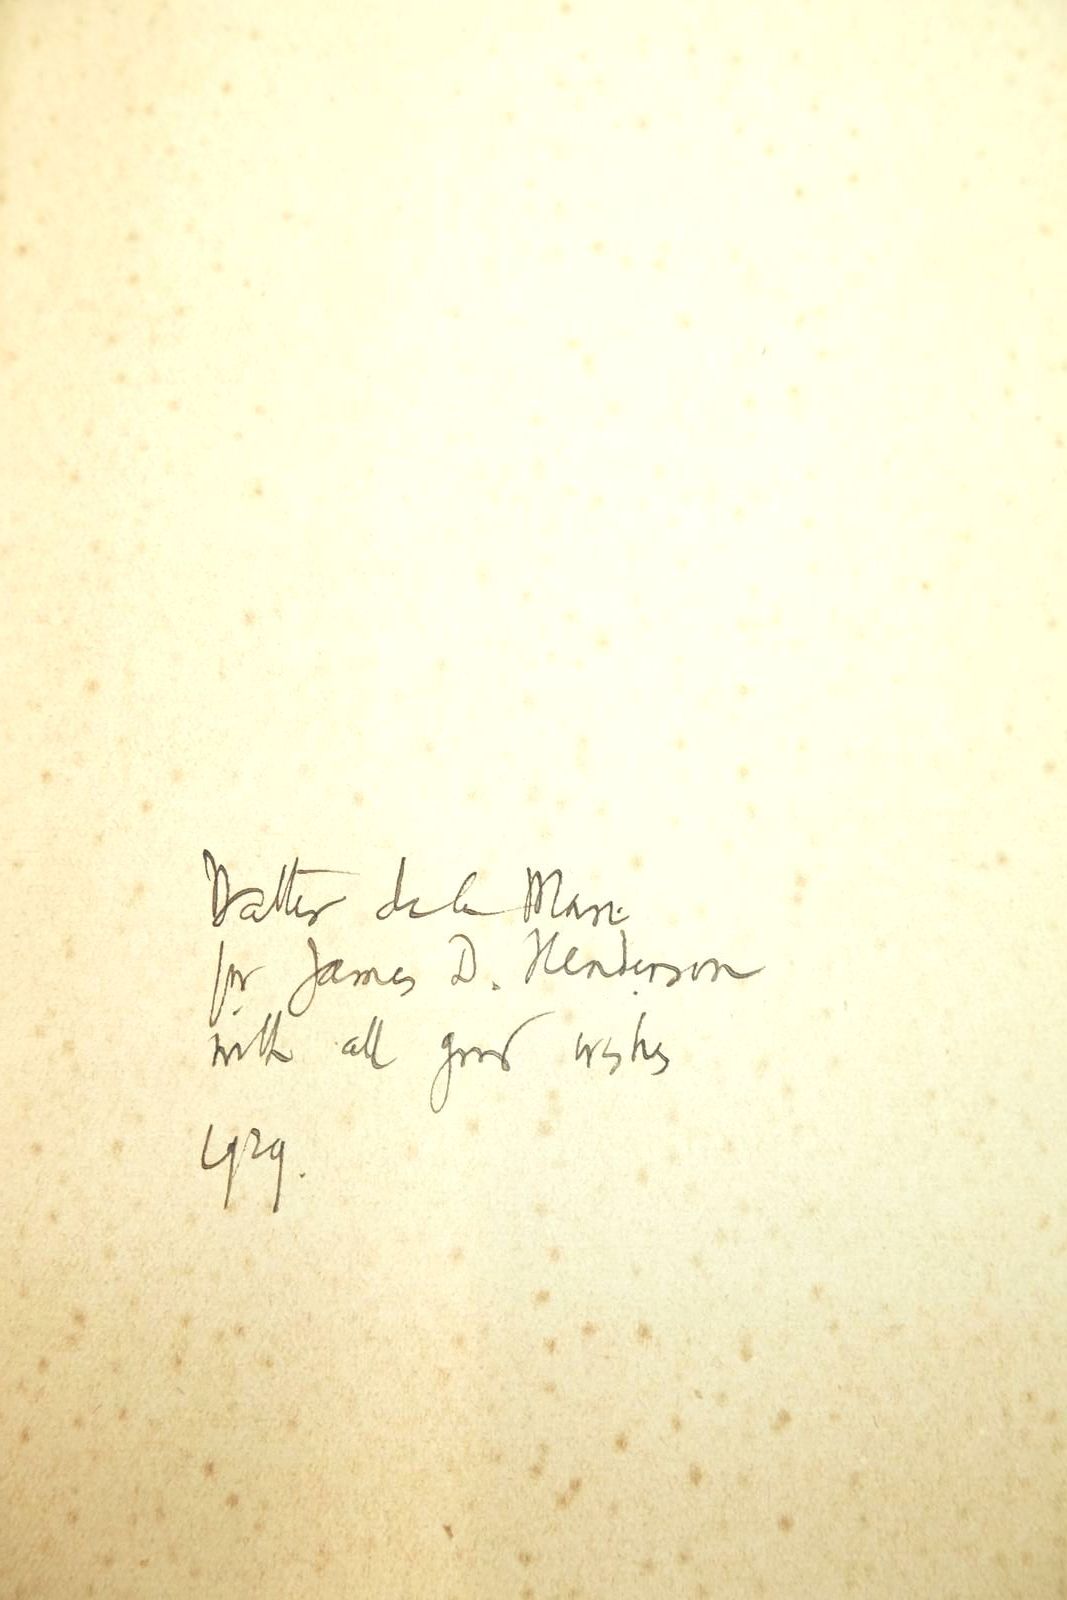 Walter de la Mare
for James D. Henderson
with all good wishes
1929.